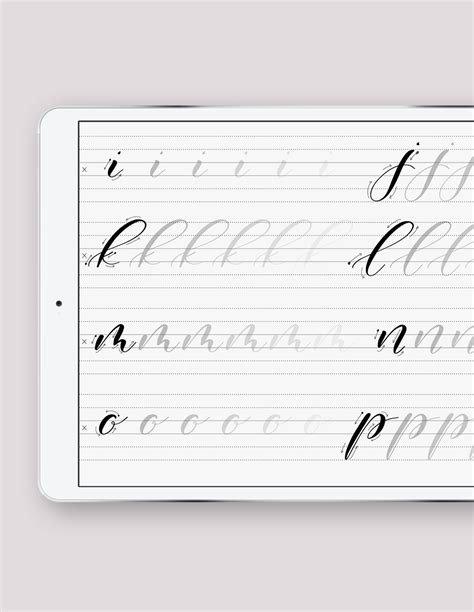 x i i i i i i j j j
x k k k k k k l l l
x m m m m m m n n n
x o o o o o o p p p p